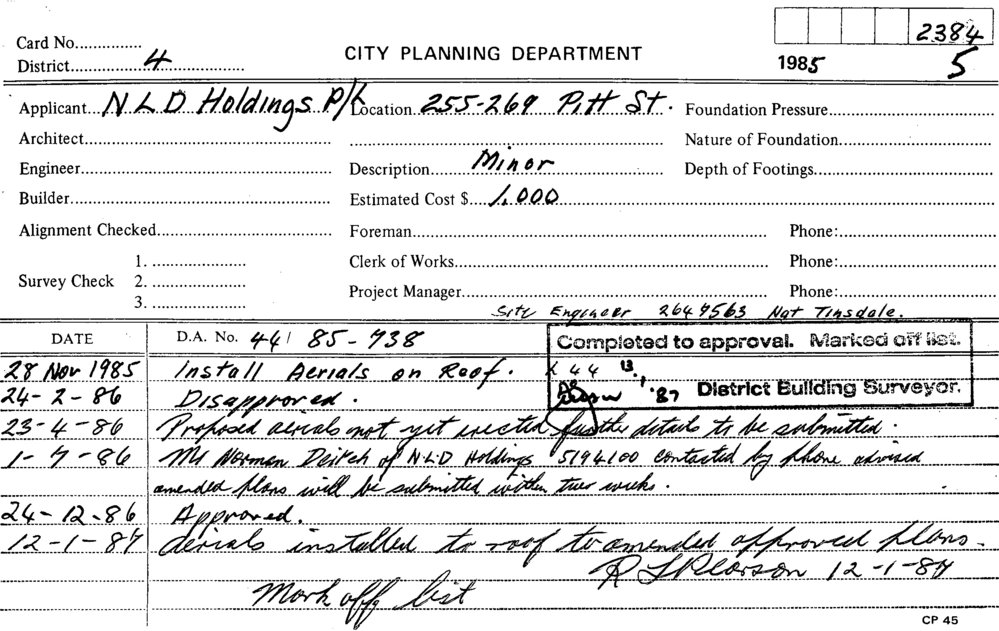 2384
Card No...............
CITY PLANNING DEPARTMENT
District 4
1985 5
Applicant N L D Holdings P/L Location 255-269 Pitt St. Foundation Pressure
Architect Nature of Foundation
Engineer Description Minor Depth of Footings
Builder Estimated Cost $ 1,000
Alignment Checked Foreman Phone:
1. Clerk of Works Phone:
Survey Check 2.
3. Project Manager Phone:
Site Engineer 264 9563 Nat Tinsdale.
DATE D.A. No. 44/ 85-738
Completed to approval. Marked off list.
28 Nov 1985 Install Aerials on Roof. 13.1.'87 District Building Surveyor.
24-2-86 Disapproved.
23-4-86 Proposed aerials not yet erected further details to be submitted.
1-7-86 Mr Norman Deitch of N.L.D Holdings 5194100 contacted by phone advised
amended plans will be submitted within two weeks.
24-12-86 Approved.
12-1-87 Aerials installed to roof to amended approved plans.
R Pearson 12-1-87
Mark off list
CP 45